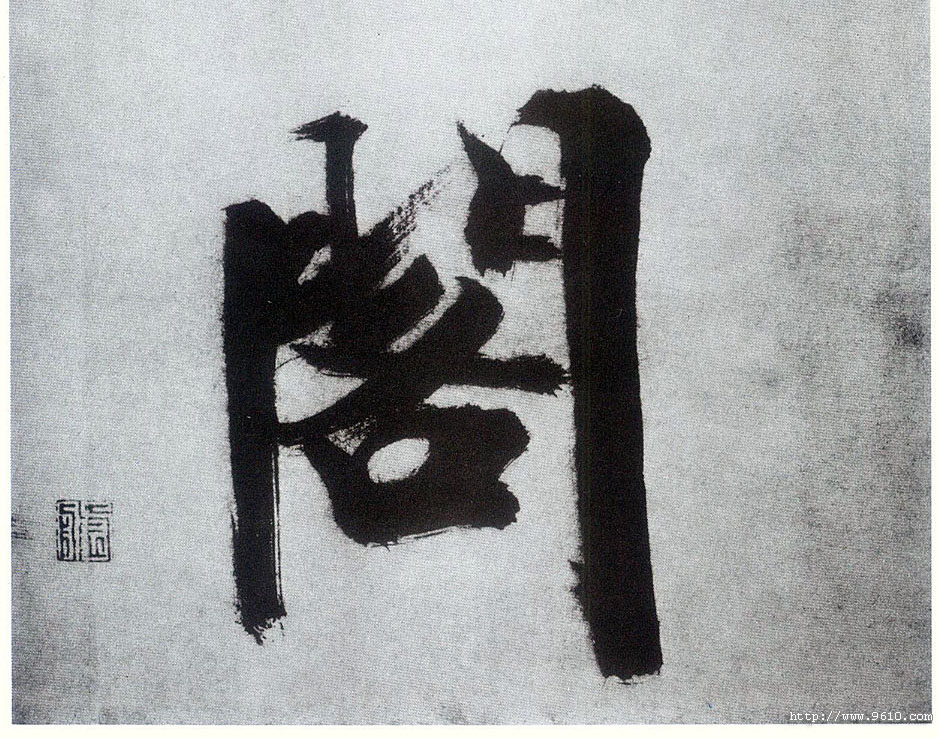 閣
http://www.9610.com